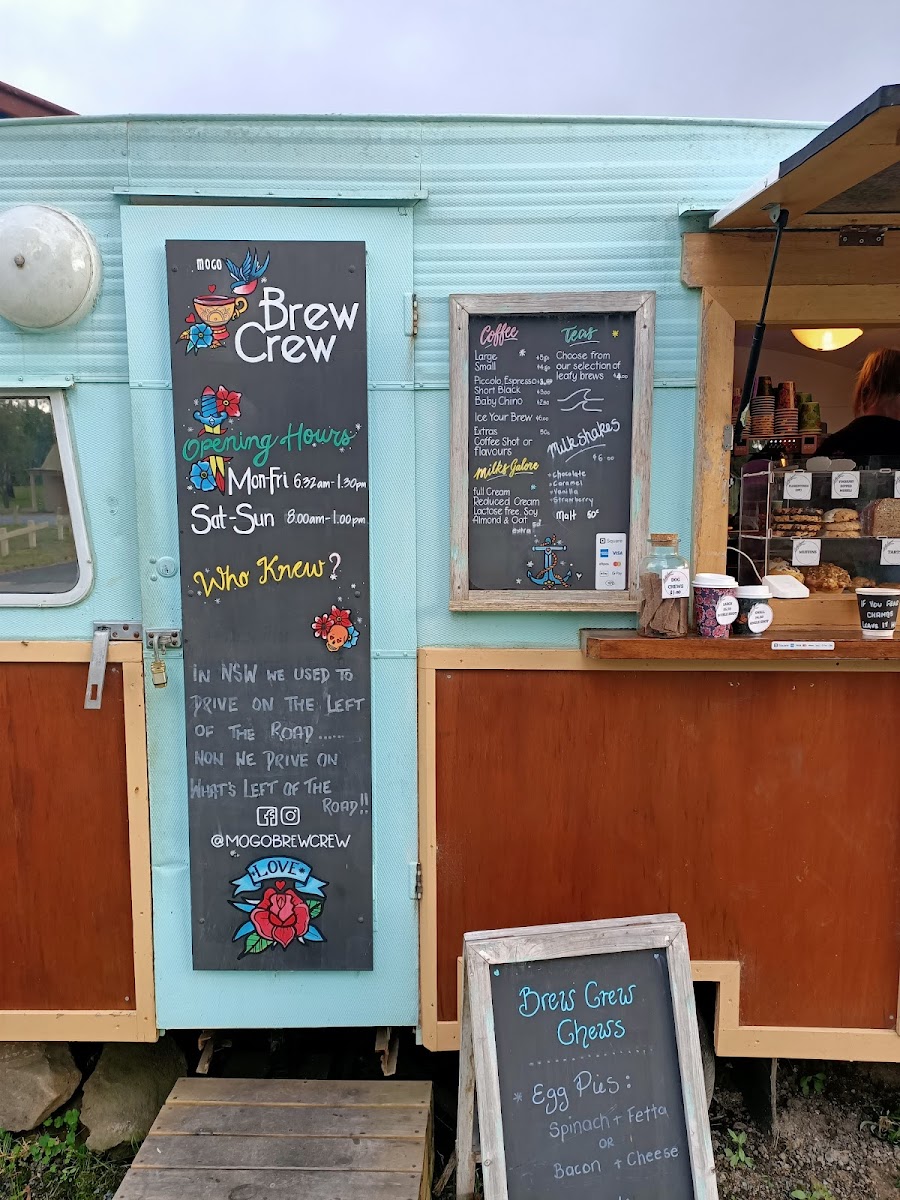 MOGO
Brew
Crew
Opening Hours
Mon-Fri 6.32am-1.30pm
Sat-Sun 8.00am-1.00pm
Who Knew?
IN NSW WE USED TO
DRIVE ON THE LEFT
OF THE ROAD......
NOW WE DRIVE ON
WHAT'S LEFT OF THE
ROAD!!
@MOGOBREWCREW
LOVE
Coffee
Large
Small
Piccolo Espresso
Short Black
Baby Chino
Ice Your Brew
Extras 50c
Coffee Shot or
flavours
Milks Galore
Full Cream
Reduced Cream
Lactose free, Soy
Almond & Oat
extra
Teas
Choose from
our selection of
leafy brews
Milkshakes
Chocolate
Caramel
Vanilla
Strawberry
Malt 50c
Square
VISA
DOG
CHEWS
IF YOU FEAR
CHANGE
LEAVE IT
Brew Crew
Chews
* Egg Pies:
Spinach + Fetta
OR
Bacon + Cheese